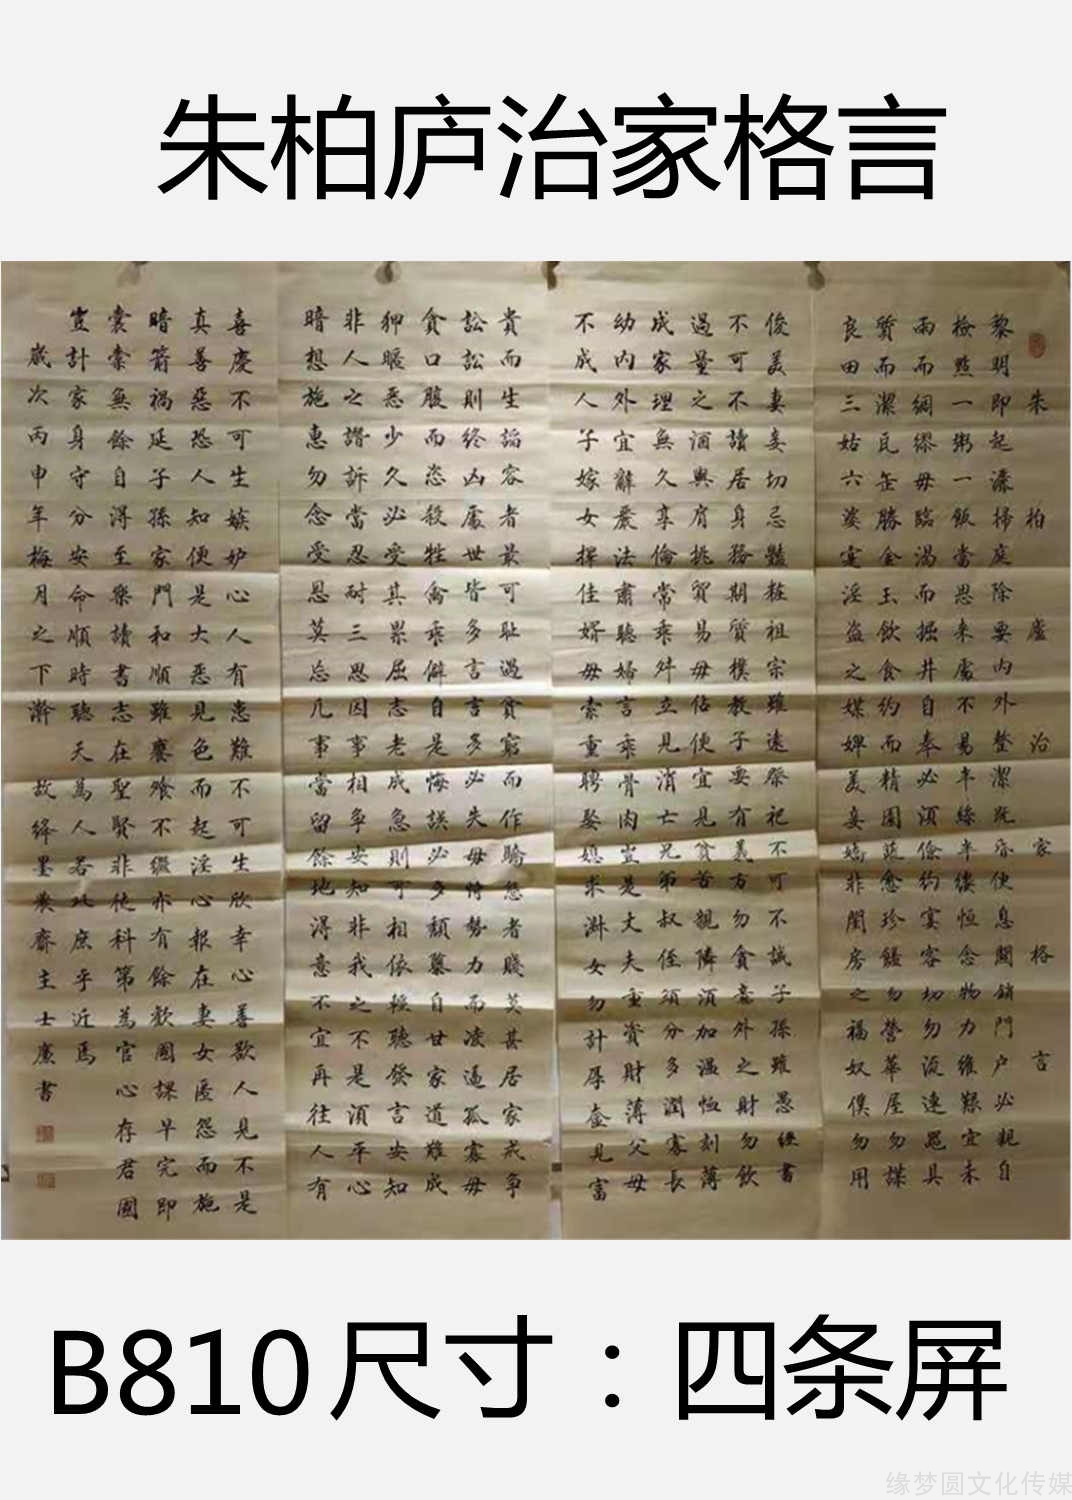 朱柏庐治家格言
朱柏廬治家格言
黎明即起灑掃庭除要內外整潔既昏便息關鎖門户必親自
檢點一粥一飯當思来處不易半絲半縷恒念物力維艱宜未
雨而綢繆毋臨渴而掘井自奉必須儉約宴客切勿流連器具
質而潔瓦缶勝金玉飲食約而精園蔬愈珍饈勿營華屋勿謀
良田三姑六婆寔淫盗之媒婢美妾嬌非閨房之福奴僕勿用
俊美妻妾切忌豔粧祖宗雖遠祭祀不可不誠子孫雖愚經書
不可不讀居身務期質樸教子要有義方勿貪意外之財勿飲
過量之酒與肩挑貿易毋佔便宜見貧苦親隣須加温恤刻薄
成家理無久享倫常乖舛立見消亡兄弟叔侄須分多潤寡長
幼内外宜辭嚴法肅聽婦言乖骨肉豈是丈夫重資財薄父母
不成人子嫁女擇佳婿毋索重聘娶媳求淑女勿計厚奩見富
貴而生謟容者最可耻遇貧窮而作驕態者賤莫甚居家戒爭
訟訟則終凶處世皆多言言多必失毋恃勢力而凌逼孤寡毋
貪口腹而恣殺牲禽乖僻自是悔誤必多頹墮自甘家道難成
狎暱惡少久必受其累屈志老成急則可相依輕聽發言安知
非人之譖訴當忍耐三思因事相爭安知非我之不是須平心
暗想施惠勿念受恩莫忘凡事當留餘地得意不宜再往人有
喜慶不可生嫉妒心人有患難不可生欣幸心善欲人見不是
真善惡恐人知便是大惡見色而起淫心報在妻女匿怨而施
暗箭禍延子孫家門和順雖饔飧不繼亦有餘歡國課早完即
囊橐無餘自得至樂讀書志在聖賢非徒科第為官心存君國
豈計家身守分安命順時聽天為人若此庶乎近焉
歲次丙申年梅月之下澣 故絳墨農齋主士廉書
B810尺寸：四条屏
缘梦圆文化传媒